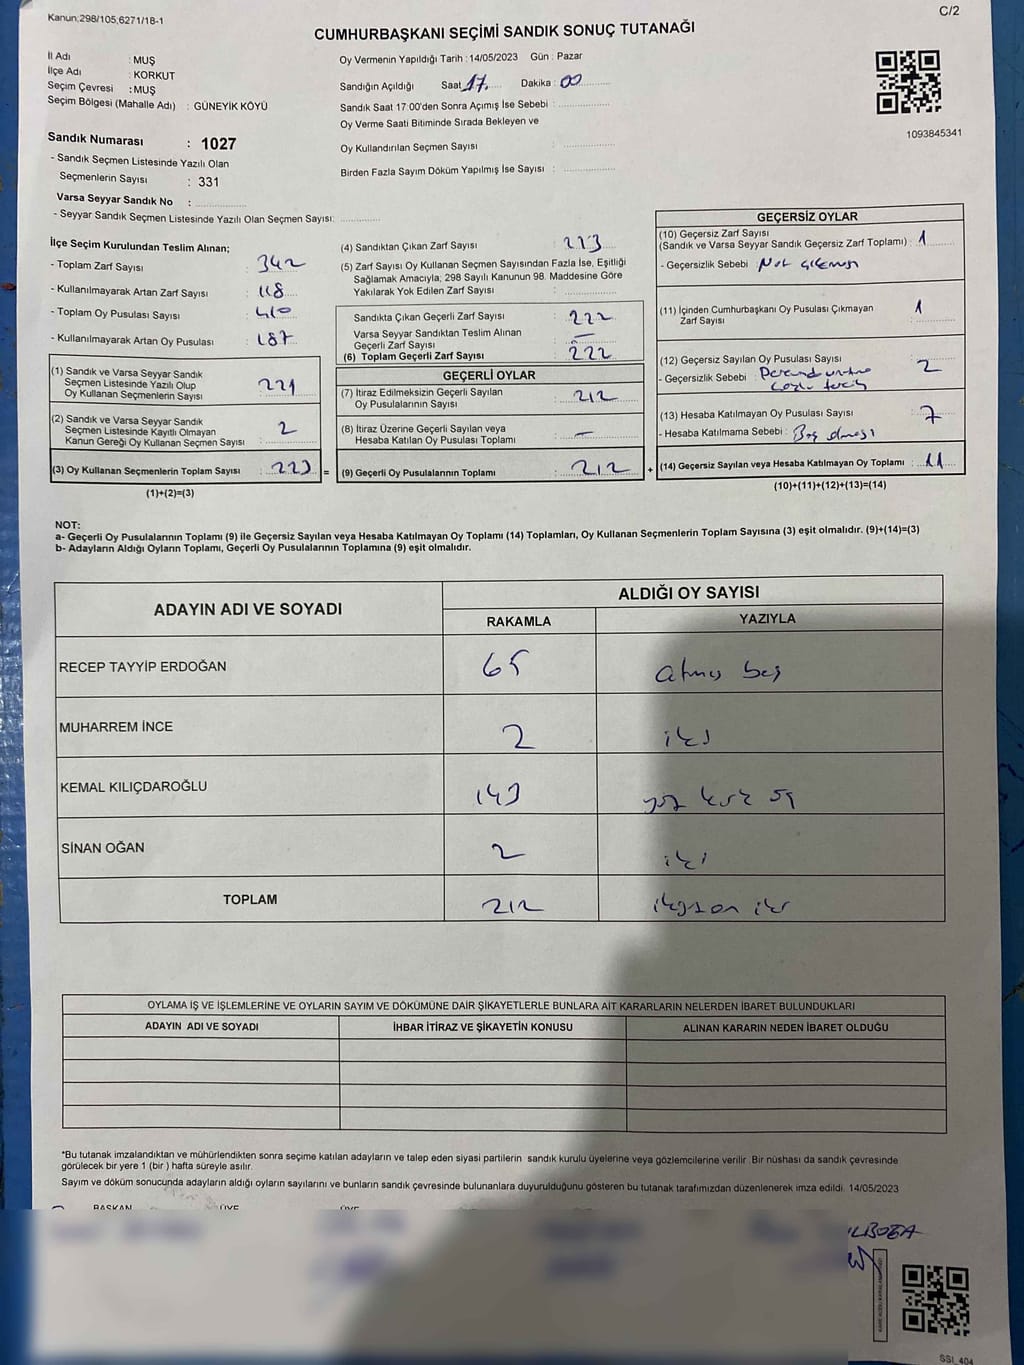 Kanun:298/105,6271/18-1
C/2
CUMHURBAŞKANI SEÇİMİ SANDIK SONUÇ TUTANAĞI
İl Adı : MUŞ
İlçe Adı : KORKUT
Seçim Çevresi : MUŞ
Seçim Bölgesi (Mahalle Adı) : GÜNEYİK KÖYÜ
Oy Vermenin Yapıldığı Tarih : 14/05/2023 Gün : Pazar
Sandığın Açıldığı Saat 17 Dakika : 00
Sandık Saat 17:00'den Sonra Açımış İse Sebebi :
Oy Verme Saati Bitiminde Sırada Bekleyen ve
Oy Kullandırılan Seçmen Sayısı :
Birden Fazla Sayım Döküm Yapılmış İse Sayısı :
1093845341
Sandık Numarası : 1027
- Sandık Seçmen Listesinde Yazılı Olan
Seçmenlerin Sayısı : 331
Varsa Seyyar Sandık No :
- Seyyar Sandık Seçmen Listesinde Yazılı Olan Seçmen Sayısı:
İlçe Seçim Kurulundan Teslim Alınan;
- Toplam Zarf Sayısı : 342
- Kullanılmayarak Artan Zarf Sayısı : 118
- Toplam Oy Pusulası Sayısı : 410
- Kullanılmayarak Artan Oy Pusulası : 187
(1) Sandık ve Varsa Seyyar Sandık
Seçmen Listesinde Yazılı Olup
Oy Kullanan Seçmenlerin Sayısı : 221
(2) Sandık ve Varsa Seyyar Sandık
Seçmen Listesinde Kayıtlı Olmayan
Kanun Gereği Oy Kullanan Seçmen Sayısı : 2
(3) Oy Kullanan Seçmenlerin Toplam Sayısı : 223 =
(1)+(2)=(3)
(4) Sandıktan Çıkan Zarf Sayısı : 223
(5) Zarf Sayısı Oy Kullanan Seçmen Sayısından Fazla İse, Eşitliği
Sağlamak Amacıyla; 298 Sayılı Kanunun 98. Maddesine Göre
Yakılarak Yok Edilen Zarf Sayısı :
Sandıkta Çıkan Geçerli Zarf Sayısı : 222
Varsa Seyyar Sandıktan Teslim Alınan
Geçerli Zarf Sayısı : —
(6) Toplam Geçerli Zarf Sayısı : 222
GEÇERLİ OYLAR
(7) İtiraz Edilmeksizin Geçerli Sayılan
Oy Pusulalarının Sayısı : 212
(8) İtiraz Üzerine Geçerli Sayılan veya
Hesaba Katılan Oy Pusulası Toplamı : —
(9) Geçerli Oy Pusulalarının Toplamı : 212 +
GEÇERSİZ OYLAR
(10) Geçersiz Zarf Sayısı
(Sandık ve Varsa Seyyar Sandık Geçersiz Zarf Toplamı) : 1
- Geçersizlik Sebebi :
(11) İçinden Cumhurbaşkanı Oy Pusulası Çıkmayan
Zarf Sayısı : 1
(12) Geçersiz Sayılan Oy Pusulası Sayısı : 2
- Geçersizlik Sebebi :
(13) Hesaba Katılmayan Oy Pusulası Sayısı : 7
- Hesaba Katılmama Sebebi : Boş olması
(14) Geçersiz Sayılan veya Hesaba Katılmayan Oy Toplamı : 11
(10)+(11)+(12)+(13)=(14)
NOT:
a- Geçerli Oy Pusulalarının Toplamı (9) ile Geçersiz Sayılan veya Hesaba Katılmayan Oy Toplamı (14) Toplamları, Oy Kullanan Seçmenlerin Toplam Sayısına (3) eşit olmalıdır. (9)+(14)=(3)
b- Adayların Aldığı Oyların Toplamı, Geçerli Oy Pusulalarının Toplamına (9) eşit olmalıdır.
ADAYIN ADI VE SOYADI
ALDIĞI OY SAYISI
RAKAMLA YAZIYLA
RECEP TAYYİP ERDOĞAN 65 atmış beş
MUHARREM İNCE 2 iki
KEMAL KILIÇDAROĞLU 143 yüz kırk üç
SİNAN OĞAN 2 iki
TOPLAM 212 ikiyüzon iki
OYLAMA İŞ VE İŞLEMLERİNE VE OYLARIN SAYIM VE DÖKÜMÜNE DAİR ŞİKAYETLERLE BUNLARA AİT KARARLARIN NELERDEN İBARET BULUNDUKLARI
ADAYIN ADI VE SOYADI İHBAR İTİRAZ VE ŞİKAYETİN KONUSU ALINAN KARARIN NEDEN İBARET OLDUĞU
*Bu tutanak imzalandıktan ve mühürlendikten sonra seçime katılan adayların ve talep eden siyasi partilerin sandık kurulu üyelerine veya gözlemcilerine verilir. Bir nüshası da sandık çevresinde
görülecek bir yere 1 (bir ) hafta süreyle asılır.
Sayım ve döküm sonucunda adayların aldığı oyların sayılarını ve bunların sandık çevresinde bulunanlara duyurulduğunu gösteren bu tutanak tarafımızdan düzenlenerek imza edildi. 14/05/2023
BAŞKAN ÜYE ÜYE
SSI 404